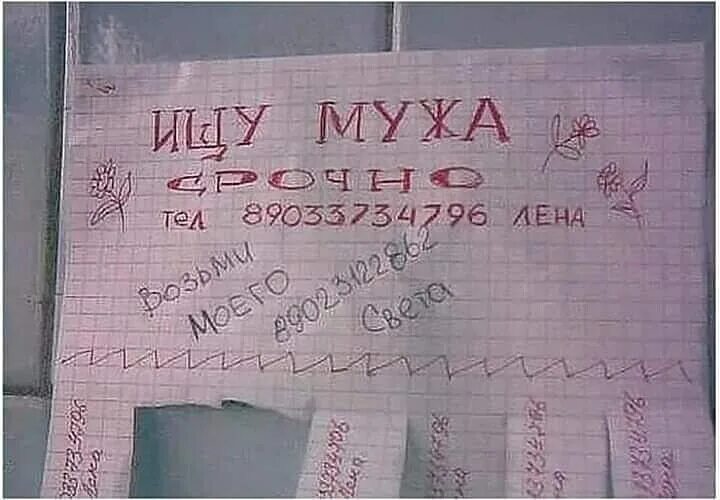 ИЩУ МУЖА
СРОЧНО
тел 89033734796 ЛЕНА
Возьми
моего
89023122862
Света